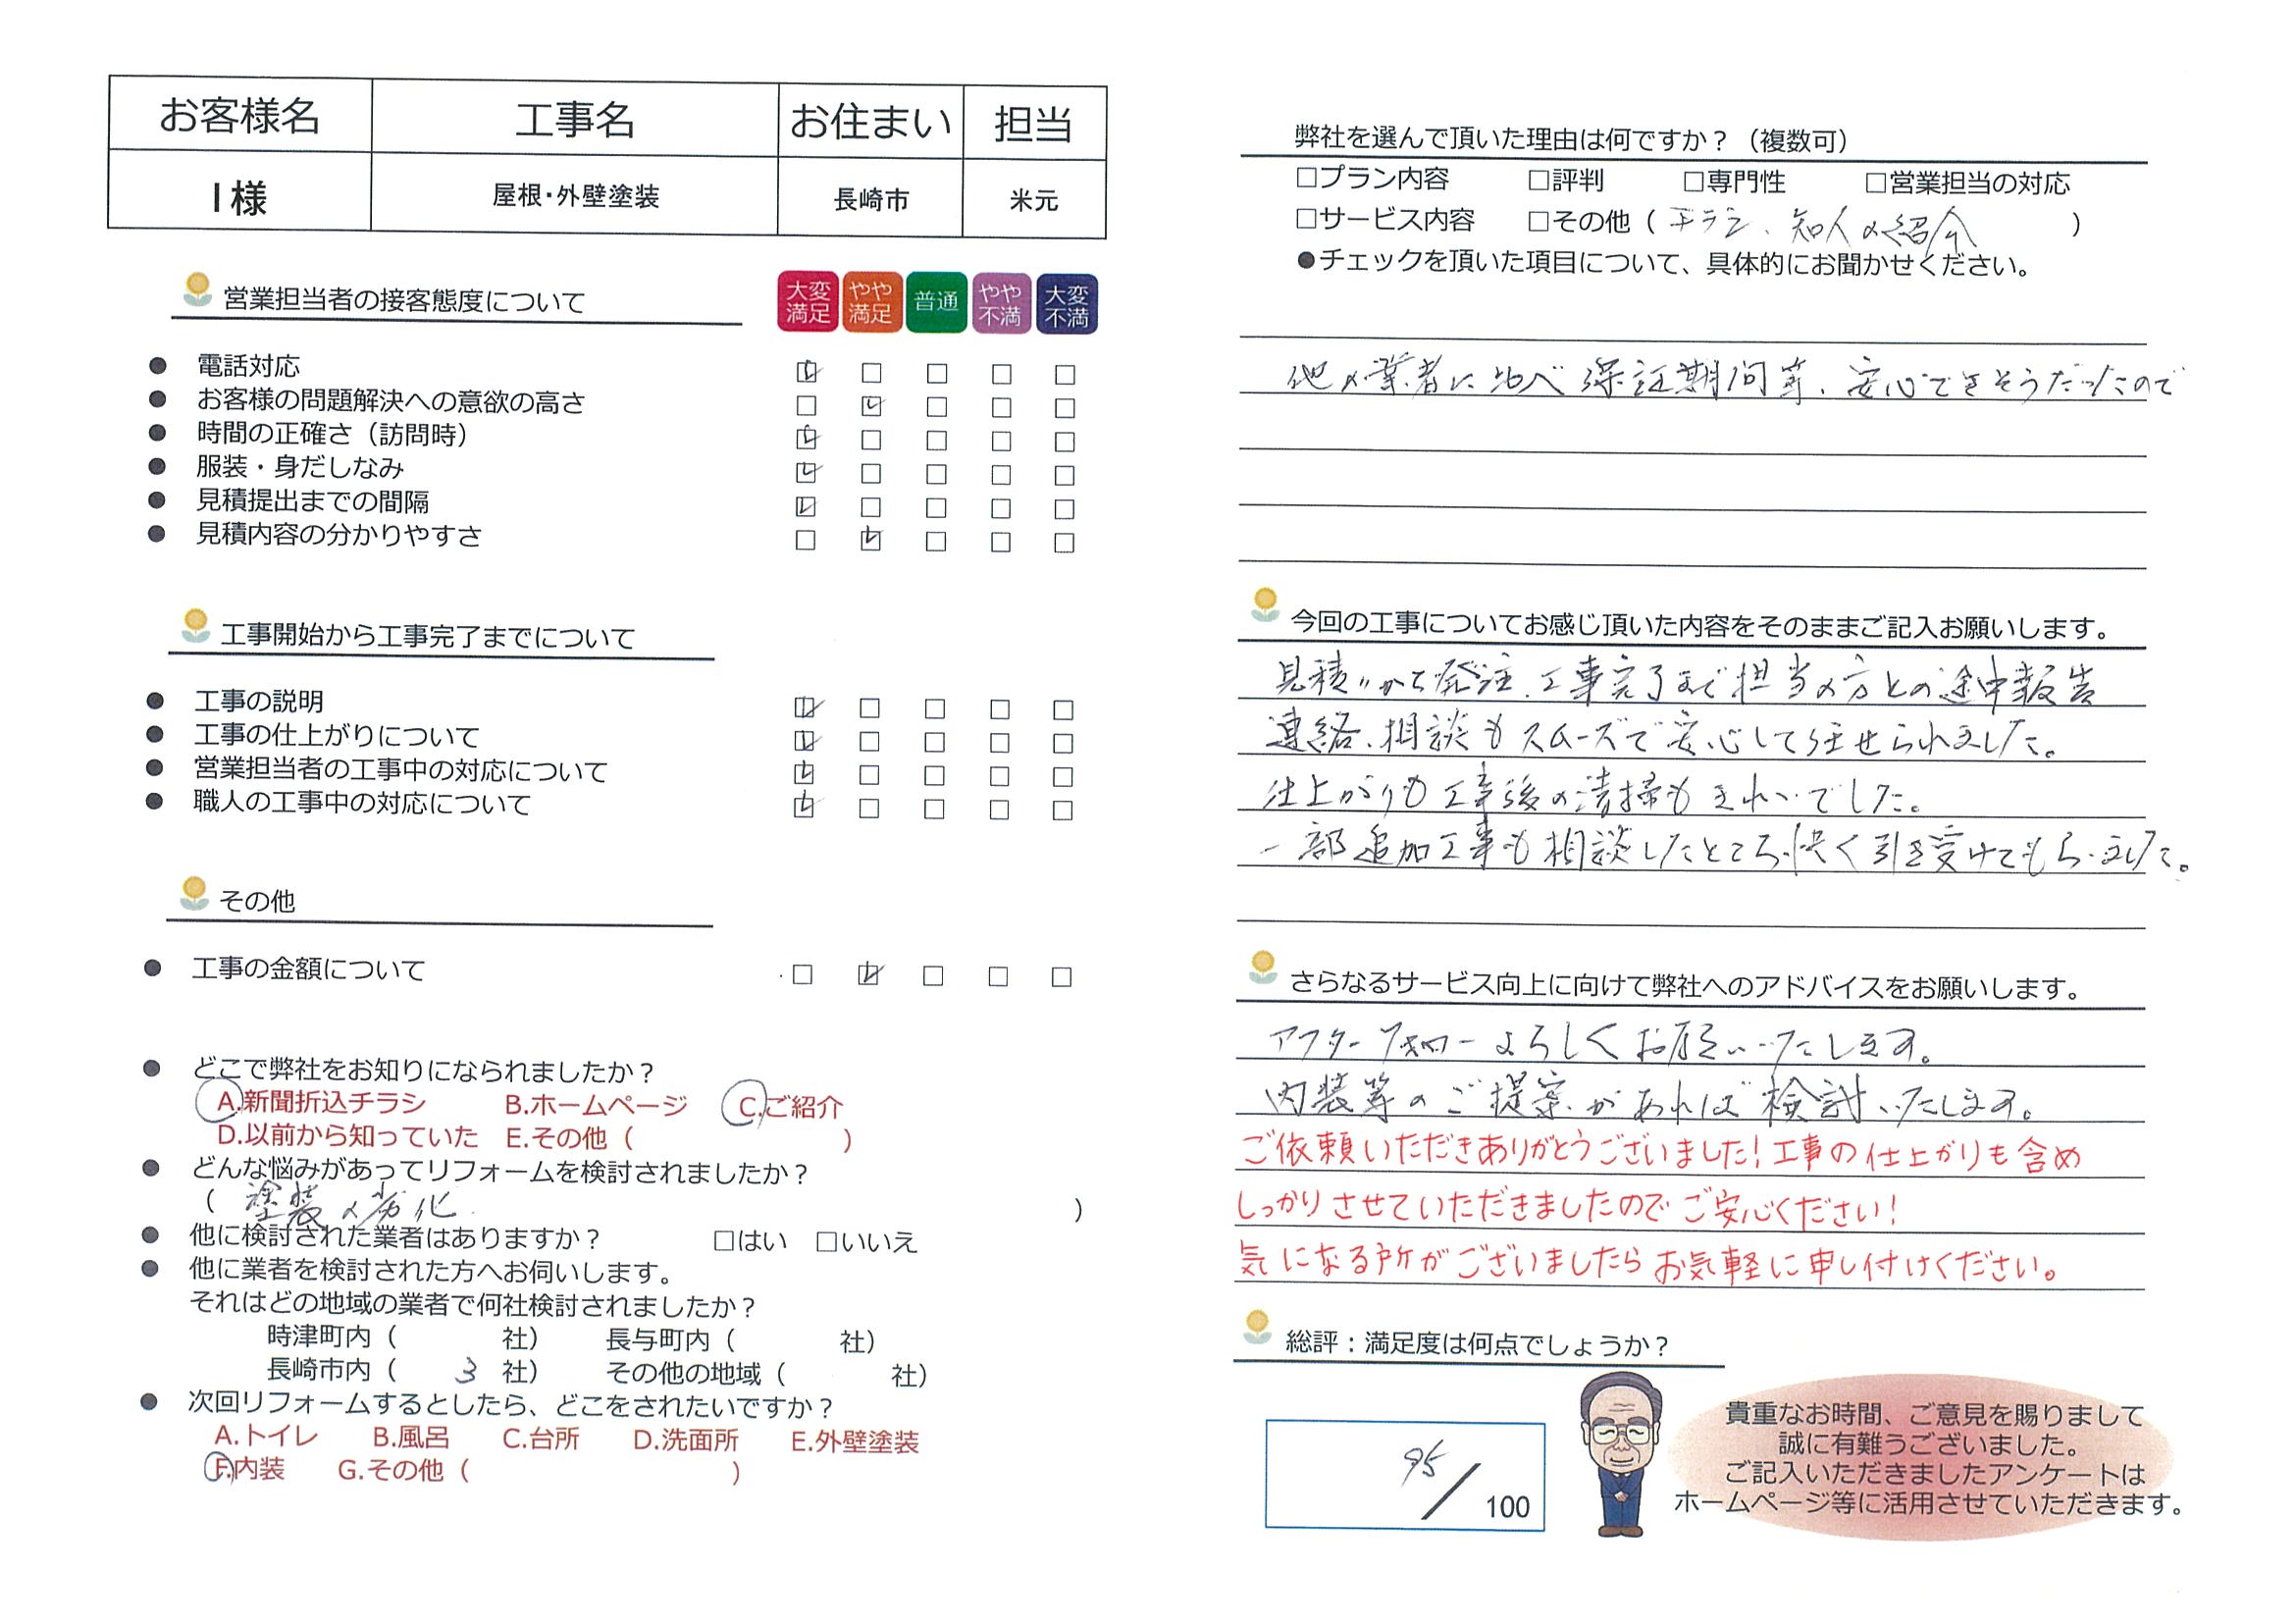 お客様名 工事名 お住まい 担当
I様 屋根・外壁塗装 長崎市 米元
営業担当者の接客態度について
大変満足 やや満足 普通 やや不満 大変不満
● 電話対応 ☑ □ □ □ □
● お客様の問題解決への意欲の高さ □ ☑ □ □ □
● 時間の正確さ（訪問時） ☑ □ □ □ □
● 服装・身だしなみ ☑ □ □ □ □
● 見積提出までの間隔 ☑ □ □ □ □
● 見積内容の分かりやすさ □ ☑ □ □ □
工事開始から工事完了までについて
● 工事の説明 ☑ □ □ □ □
● 工事の仕上がりについて ☑ □ □ □ □
● 営業担当者の工事中の対応について ☑ □ □ □ □
● 職人の工事中の対応について ☑ □ □ □ □
その他
● 工事の金額について □ ☑ □ □ □
● どこで弊社をお知りになられましたか？
A.新聞折込チラシ B.ホームページ C.ご紹介
D.以前から知っていた E.その他（ ）
● どんな悩みがあってリフォームを検討されましたか？
（ 塗装の劣化 ）
● 他に検討された業者はありますか？ □はい □いいえ
● 他に業者を検討された方へお伺いします。
それはどの地域の業者で何社検討されましたか？
時津町内（ 社） 長与町内（ 社）
長崎市内（ 3 社） その他の地域（ 社）
● 次回リフォームするとしたら、どこをされたいですか？
A.トイレ B.風呂 C.台所 D.洗面所 E.外壁塗装
F.内装 G.その他（ ）
弊社を選んで頂いた理由は何ですか？（複数可）
□プラン内容 □評判 □専門性 □営業担当の対応
□サービス内容 □その他（ チラシ、知人の紹介 ）
●チェックを頂いた項目について、具体的にお聞かせください。
他の業者に比べ保証期間等、安心できそうだったので
今回の工事についてお感じ頂いた内容をそのままご記入お願いします。
見積いから発注、工事完了まで担当の方との途中報告
連絡、相談もスムーズで安心して任せられました。
仕上がりも工事後の清掃もきれいでした。
一部追加工事も相談したところ、快く引き受けてもらいました。
さらなるサービス向上に向けて弊社へのアドバイスをお願いします。
アフターフォローよろしくお願いいたします。
内装等のご提案があれば検討いたします。
ご依頼いただきありがとうございました！工事の仕上がりも含め
しっかりさせていただきましたのでご安心ください！
気になる所がございましたらお気軽に申し付けください。
総評：満足度は何点でしょうか？
95／100
貴重なお時間、ご意見を賜りまして
誠に有難うございました。
ご記入いただきましたアンケートは
ホームページ等に活用させていただきます。